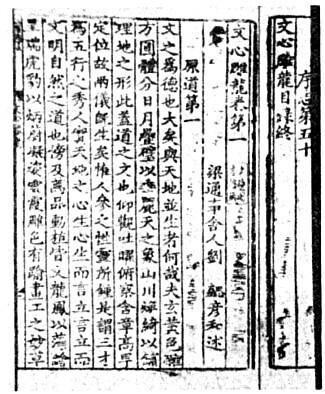 序志第五十
文心雕龍目録終
文心雕龍卷第一
梁通事舍人劉 勰彥和述
原道第一
文之爲德也大矣與天地並生者何哉夫玄黃色雜
方圓體分日月疊璧以垂麗天之象山川煥綺以鋪
理地之形此蓋道之文也仰觀吐曜俯察含章高卑
定位故兩儀旣生矣惟人參之性靈所鍾是謂三才
爲五行之秀人實天地之心生心生而言立言立而
文明自然之道也傍及萬品動植皆文龍鳳以藻繪
呈瑞虎豹以炳蔚凝姿雲霞雕色有踰畫工之妙草